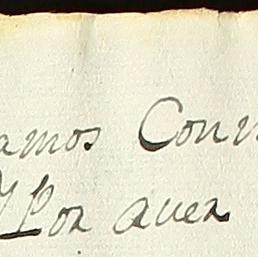 amos Conv
Y Por auer